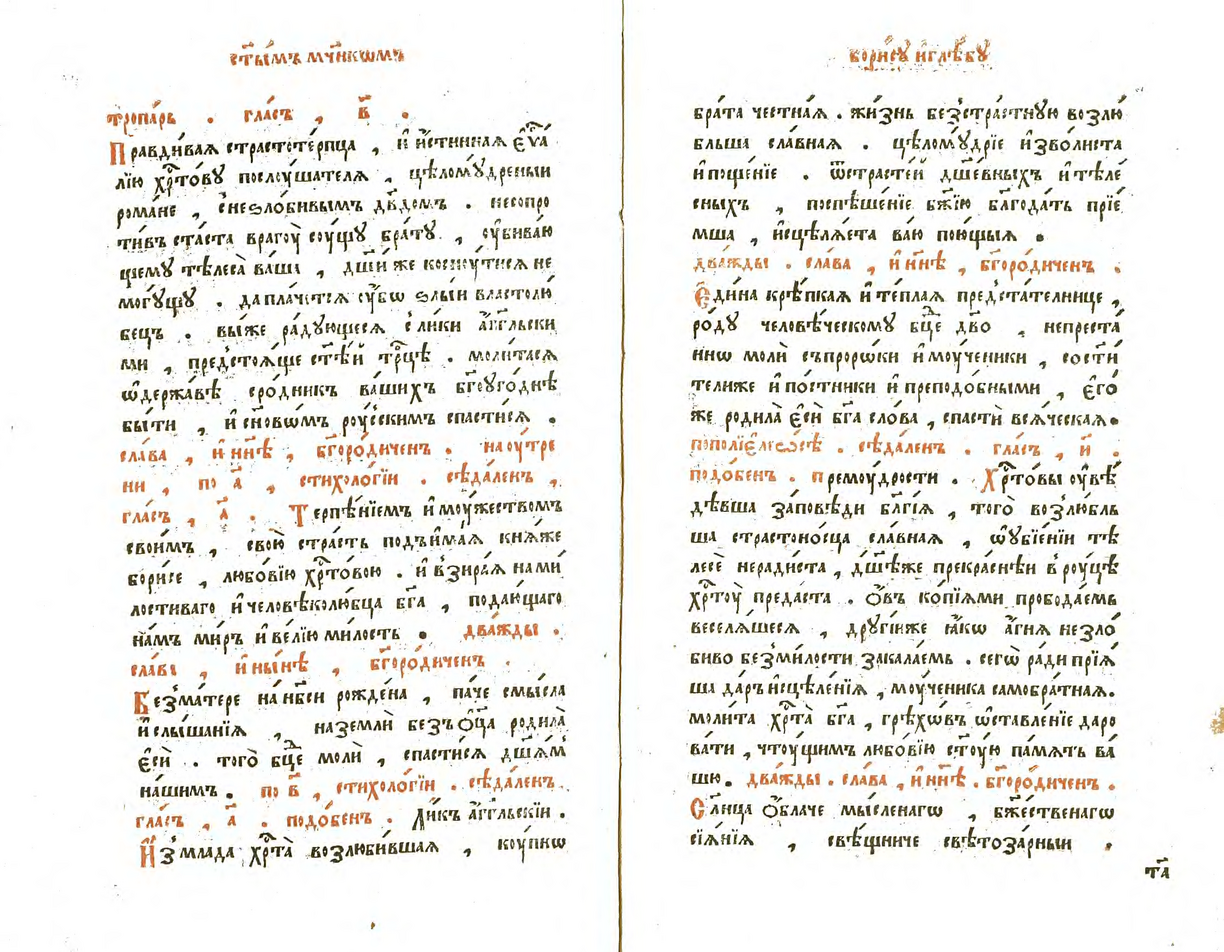 ст҃ы́мъ мч҃нкѡмъ
тропа́рь . гла́съ , в҃ .
Пра́вдиваѧ страстоте́рпца , и҆ и҆́стиннаѧ є҆ѵⷢ҇а́
лїю хрⷭ҇то́вꙋ послꙋ́шателѧ , цѣломꙋ́дреныи
рома́не , с̾неѕло́бивымъ дв҃домъ . несопро
ти́въ ста́ста врагꙋ̀ сꙋ́щꙋ бра́тꙋ , ᲂу҆бива́ю
щемꙋ тѣлеса̀ ва́ша , дш҃и́ же коснꙋ́тисѧ не
могꙋ́щꙋ . да пла́четсѧ ᲂу҆́бѡ ѕлы́и властолю́
бецъ . вы́же ра́дꙋющесѧ с̾ ли́ки а҆́гг҃льски
ми , предстоѧ́ще ст҃ѣ́й трⷪ҇цѣ . моли́тасѧ
ѡ҆держа́вѣ сро́дникъ ва́шихъ бг҃оꙋго́днѣ
бы́ти , и҆ сн҃овѡ́мъ рꙋ́сскимъ спасти́сѧ .
сла́ва , и҆ нн҃ѣ , бг҃оро́диченъ . на ᲂу҆́тре
ни , по а҃ , стихоло́гїи . сѣда́ленъ ,
гла́съ , а҃ . Терпѣ́нїемъ и҆ мꙋ́жествомъ
свои́мъ , свою̀ стра́сть подъи́маѧ кнѧ́же
бори́се , любо́вїю хрⷭ҇то́вою . и҆ взира́ѧ на ми́
лостиваго и҆ человѣколю́бца бг҃а , подаю́щаго
на́мъ ми́ръ и҆ ве́лїю ми́лость . два́жды .
сла́ва , и҆ ны́нѣ , бг҃оро́диченъ .
Без̾ма́тере на нб҃си рожде́на , па́че смы́сла
и҆ слы́шанїѧ , на землѝ без̾ ѻ҆ц҃а̀ родила̀
є҆сѝ . того̀ бц҃е молѝ , спасти́сѧ дш҃а́м
на́шимъ . по в҃ , стихоло́гїи . сѣда́ленъ .
гла́съ , а҃ . подо́бенъ . Ли́къ а҆́гг҃льскїи .
И҆з̾ мла́да хрⷭ҇та̀ возлюби́вшаѧ , кꙋ́пнѡ
бори́сꙋ и҆ глѣ́бꙋ
бра́та че́стнаѧ . жи́знь без̾стра́стнꙋю возлю́
бльша сла́внаѧ . цѣломꙋ́дрїе и҆зво́листа
и҆ поще́нїе . ѿ страсте́й дш҃е́вныхъ и҆ тѣле́
сныхъ , поспѣше́нїе бж҃їю блг҃ода́ть прїе́
мша , и҆сцѣлѧ́ета ва́ю пою́щыѧ .
два́жды . сла́ва , и҆ нн҃ѣ , бг҃оро́диченъ .
Є҆ди́на крѣ́пкаѧ и҆ те́плаѧ предста́телнице ,
ро́дꙋ человѣ́ческомꙋ бц҃е дв҃о , непреста́
ннѡ молѝ съ проро́ки и҆ мꙋ́ченики , со ст҃и́
тели же и҆ по́стники и҆ преподо́бными , є҆го́
же родила̀ є҆сѝ бг҃а сло́ва , спастѝ всѧ́ческаѧ .
по полїеле́ѡсѣ . сѣда́ленъ . гла́съ , и҃ .
подо́бенъ . премꙋ́дрости . Хрⷭ҇то́вы ᲂу҆вѣ́
дѣвша за́повѣди блг҃і́ѧ , того̀ возлю́бль
ша страстоно́сца сла́внаѧ , ѡ҆ ᲂу҆бїе́нїи тѣ
лесѐ неради́ста , дш҃ѣ́же прекра́снѣи в̾рꙋ́цѣ
хрⷭ҇тꙋ̀ преда́ста . ѻ҆́въ ко́пїѧми пробода́емь
веселѧ́шесѧ , дрꙋгі́иже ꙗ҆́кѡ а҆́гнѧ незло́
биво без̾ми́лости закала́емь . сегѡ̀ ра́ди прїѧ́
ша да́ръ и҆сцѣле́нїѧ , мꙋ́ченика самобра́тнаѧ .
моли́та хрⷭ҇та̀ бг҃а , грѣхѡ́въ ѡ҆ставле́нїе даро
ва́ти , чтꙋ́щимъ любо́вїю ст҃ꙋ́ю па́мѧть ва́
шю . два́жды . сла́ва , и҆ нн҃ѣ . бг҃оро́диченъ .
Сл҃нца ѻ҆́блаче мы́сленагѡ , бж҃е́ственагѡ
сїѧ́нїѧ , свѣ́щниче свѣтоза́рныи .
та̀